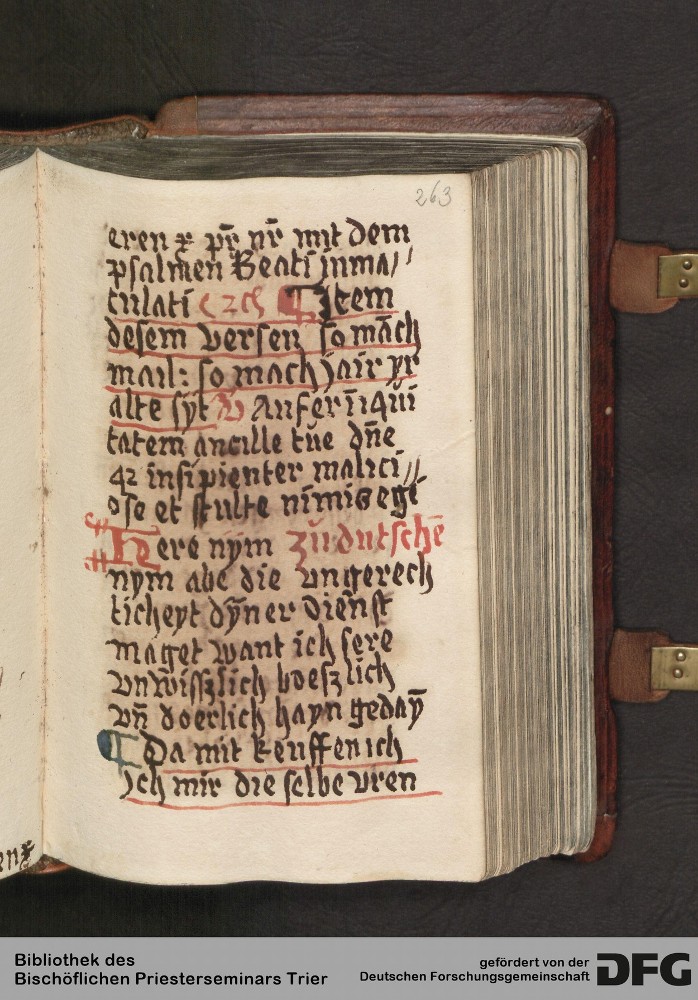 263
eren ⁊ pr̄ nr̄ mit dem
psalmen Beati inma//
culati ⁊c̄ Item
desem versen so māch
mail: so mach jair yr
alte syt V Aufer īiqui
tatem ancille tue dn̄e
q2 insipienter malici//
ose et stulte nimis egi
Here nym zu dutschē
nym abe die ungerech
ticheyt dyner dienst
maget want ich sere
vnwisszlich boeszlich
vn̄ doerlich hayn gedaȳ
Da mit keuffen ich
Ich mir die selbe vren
en⁊
Bibliothek des
Bischöflichen Priesterseminars Trier
gefördert von der
Deutschen Forschungsgemeinschaft DFG